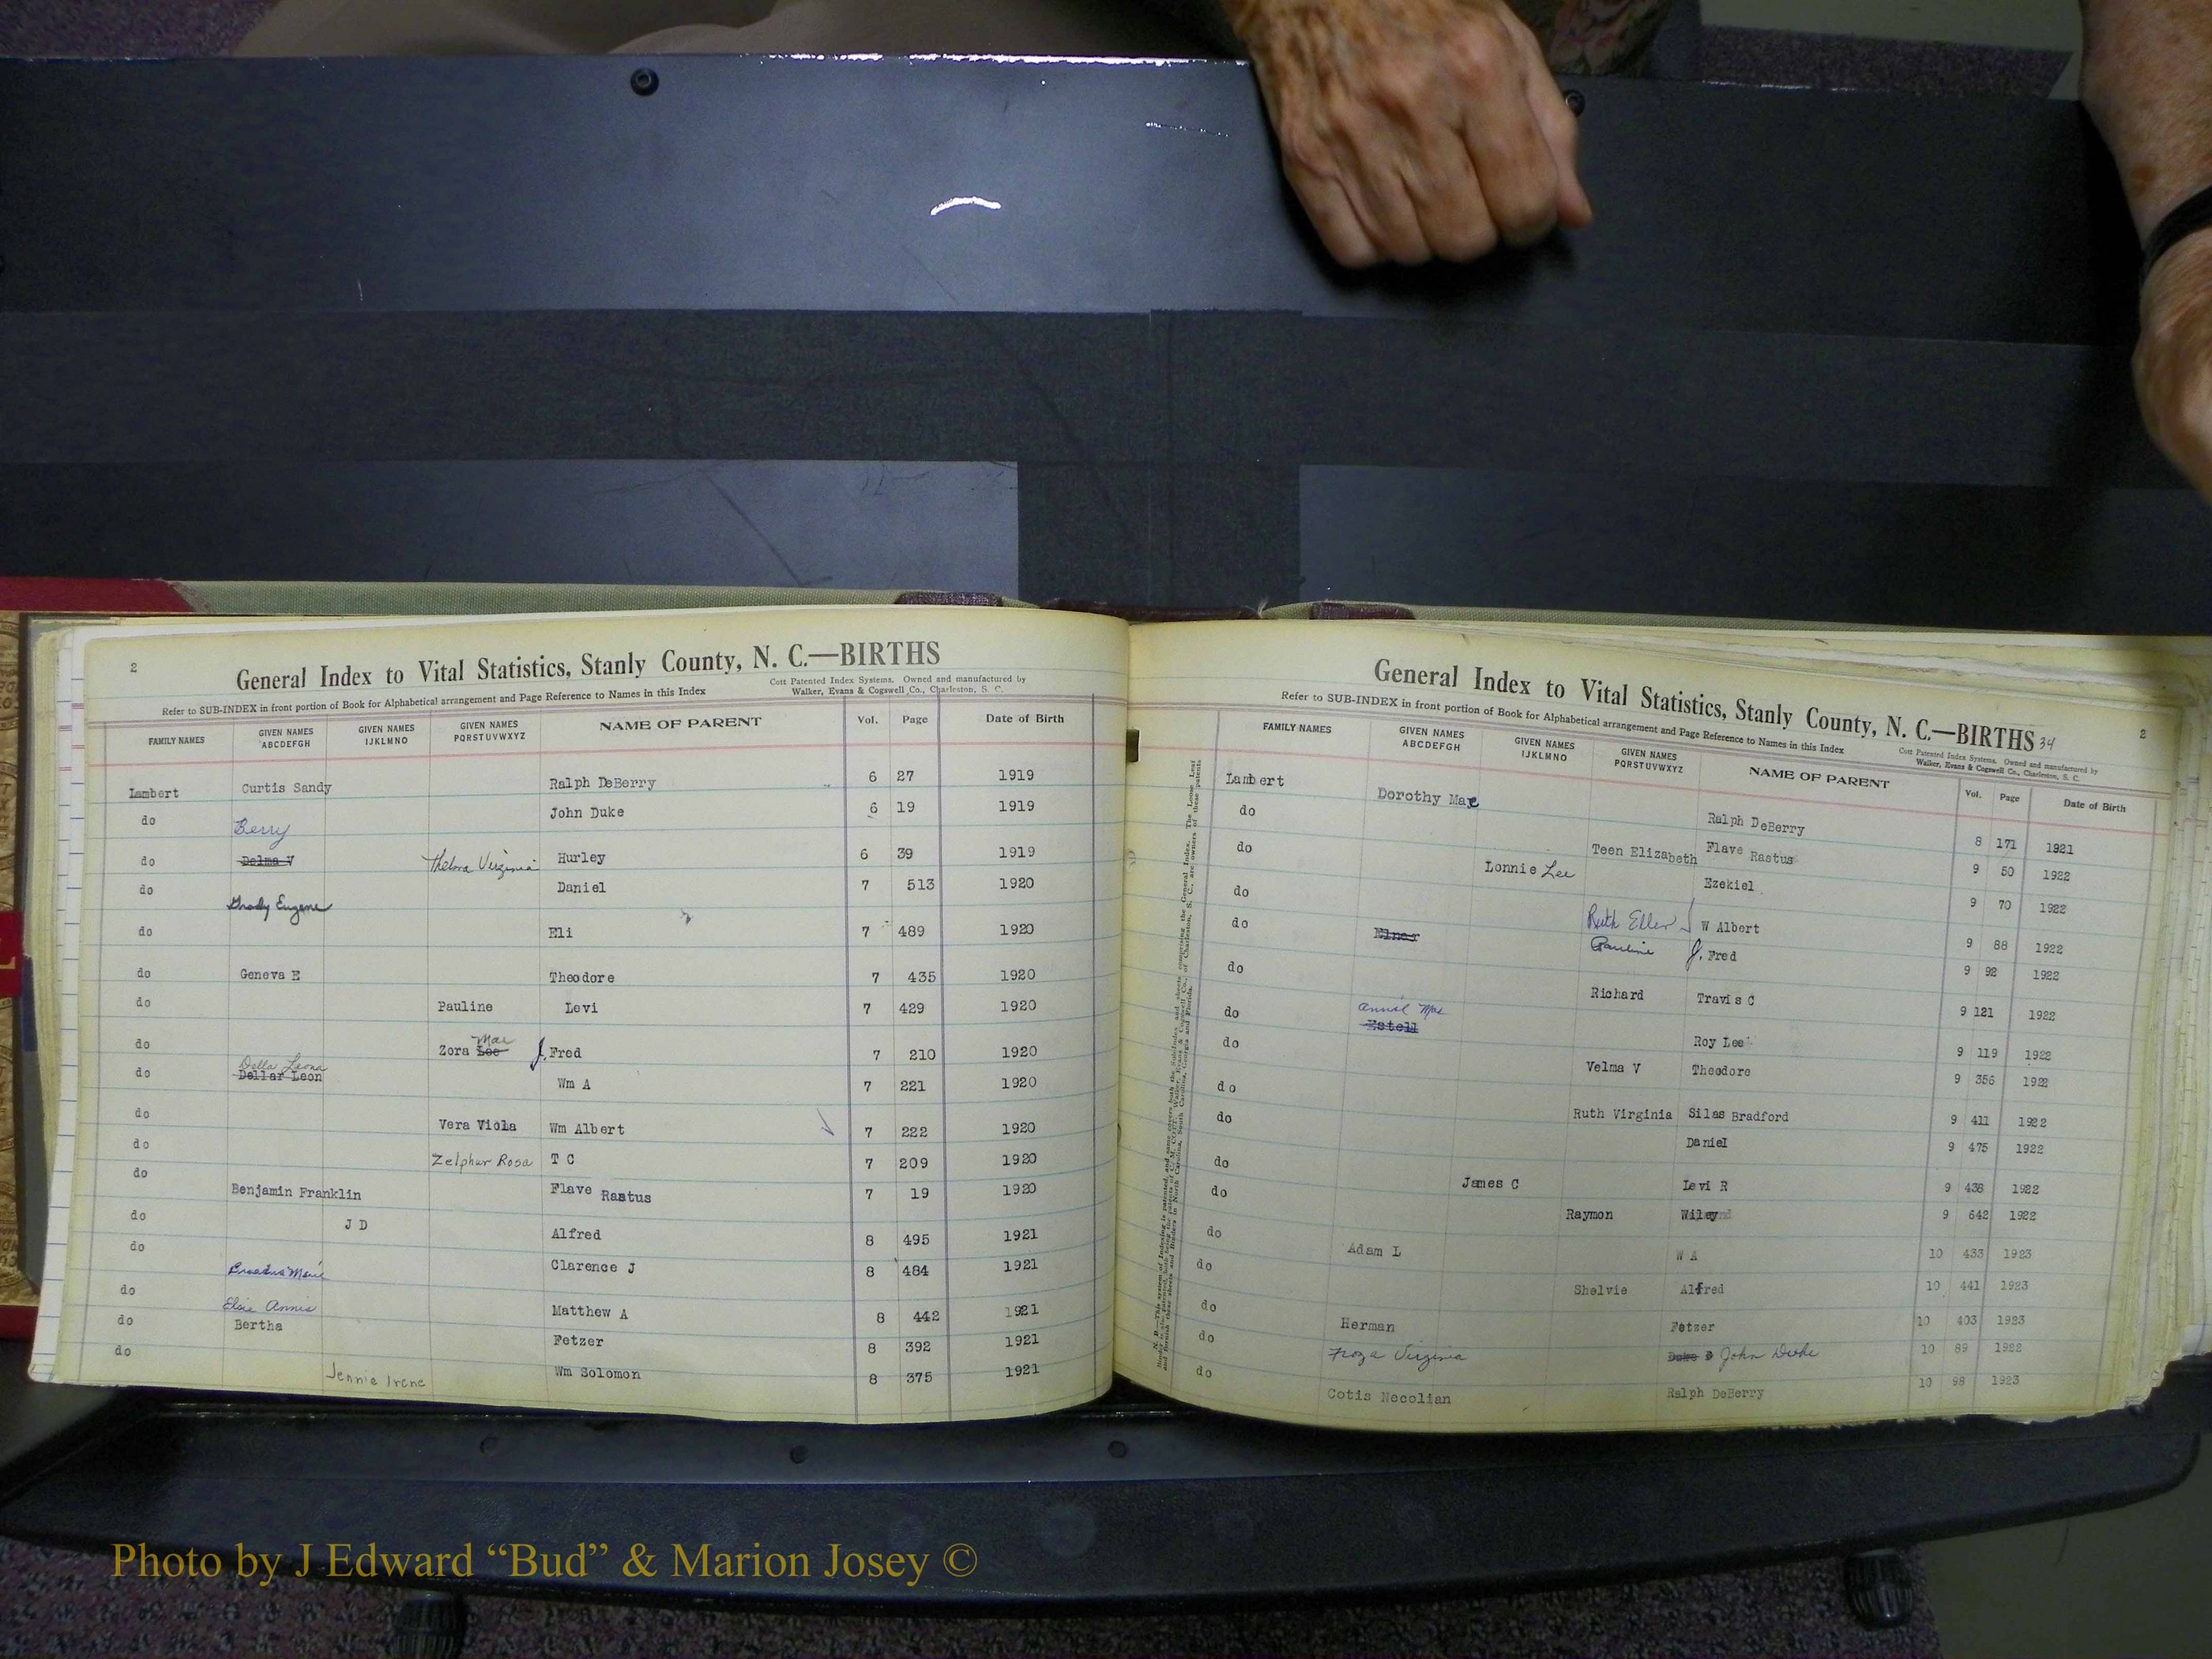 2
General Index to Vital Statistics, Stanly County, N. C.—BIRTHS
Refer to SUB-INDEX in front portion of Book for Alphabetical arrangement and Page Reference to Names in this Index
Cott Patented Index Systems. Owned and manufactured by
Walker, Evans & Cogswell Co., Charleston, S. C.
FAMILY NAMES GIVEN NAMES ABCDEFGH GIVEN NAMES IJKLMNO GIVEN NAMES PQRSTUVWXYZ NAME OF PARENT Vol. Page Date of Birth
Lambert Curtis Sandy Ralph DeBerry 6 27 1919
do Berry John Duke 6 19 1919
do Delma V Thelma Virginia Hurley 6 39 1919
do Grady Eugene Daniel 7 513 1920
do Eli 7 489 1920
do Geneva E Theodore 7 435 1920
do Pauline Levi 7 429 1920
do Zora Lee Mae J. Fred 7 210 1920
do Della Leona Dellar Leon Wm A 7 221 1920
do Vera Viola Wm Albert 7 222 1920
do Zelphur Rosa T C 7 209 1920
do Benjamin Franklin Flave Rastus 7 19 1920
do J D Alfred 8 495 1921
do Clarence J 8 484 1921
do Elsie Annie Matthew A 8 442 1921
do Bertha Fetzer 8 392 1921
do Jennie Irene Wm Solomon 8 375 1921
General Index to Vital Statistics, Stanly County, N. C.—BIRTHS 34
2
Refer to SUB-INDEX in front portion of Book for Alphabetical arrangement and Page Reference to Names in this Index
Cott Patented Index Systems. Owned and manufactured by
Walker, Evans & Cogswell Co., Charleston, S. C.
FAMILY NAMES GIVEN NAMES ABCDEFGH GIVEN NAMES IJKLMNO GIVEN NAMES PQRSTUVWXYZ NAME OF PARENT Vol. Page Date of Birth
Lambert Dorothy Mae Ralph DeBerry 8 171 1921
do Teen Elizabeth Flave Rastus 9 50 1922
do Lonnie Lee Ezekiel 9 70 1922
do Ruth Ellen W Albert 9 88 1922
do Elner Pauline J. Fred 9 92 1922
do Richard Travis C 9 121 1922
do Annie Mae Estell Roy Lee 9 119 1922
do Velma V Theodore 9 356 1922
do Ruth Virginia Silas Bradford 9 411 1922
do Daniel 9 475 1922
do James C Levi R 9 438 1922
do Raymon Wiley 9 642 1922
do Adam L W A 10 433 1923
do Shelvie Alfred 10 441 1923
do Herman Fetzer 10 403 1923
do Virginia John Duke 10 89 1922
do Cotis Necolian Ralph DeBerry 10 98 1923
Photo by J Edward “Bud” & Marion Josey ©